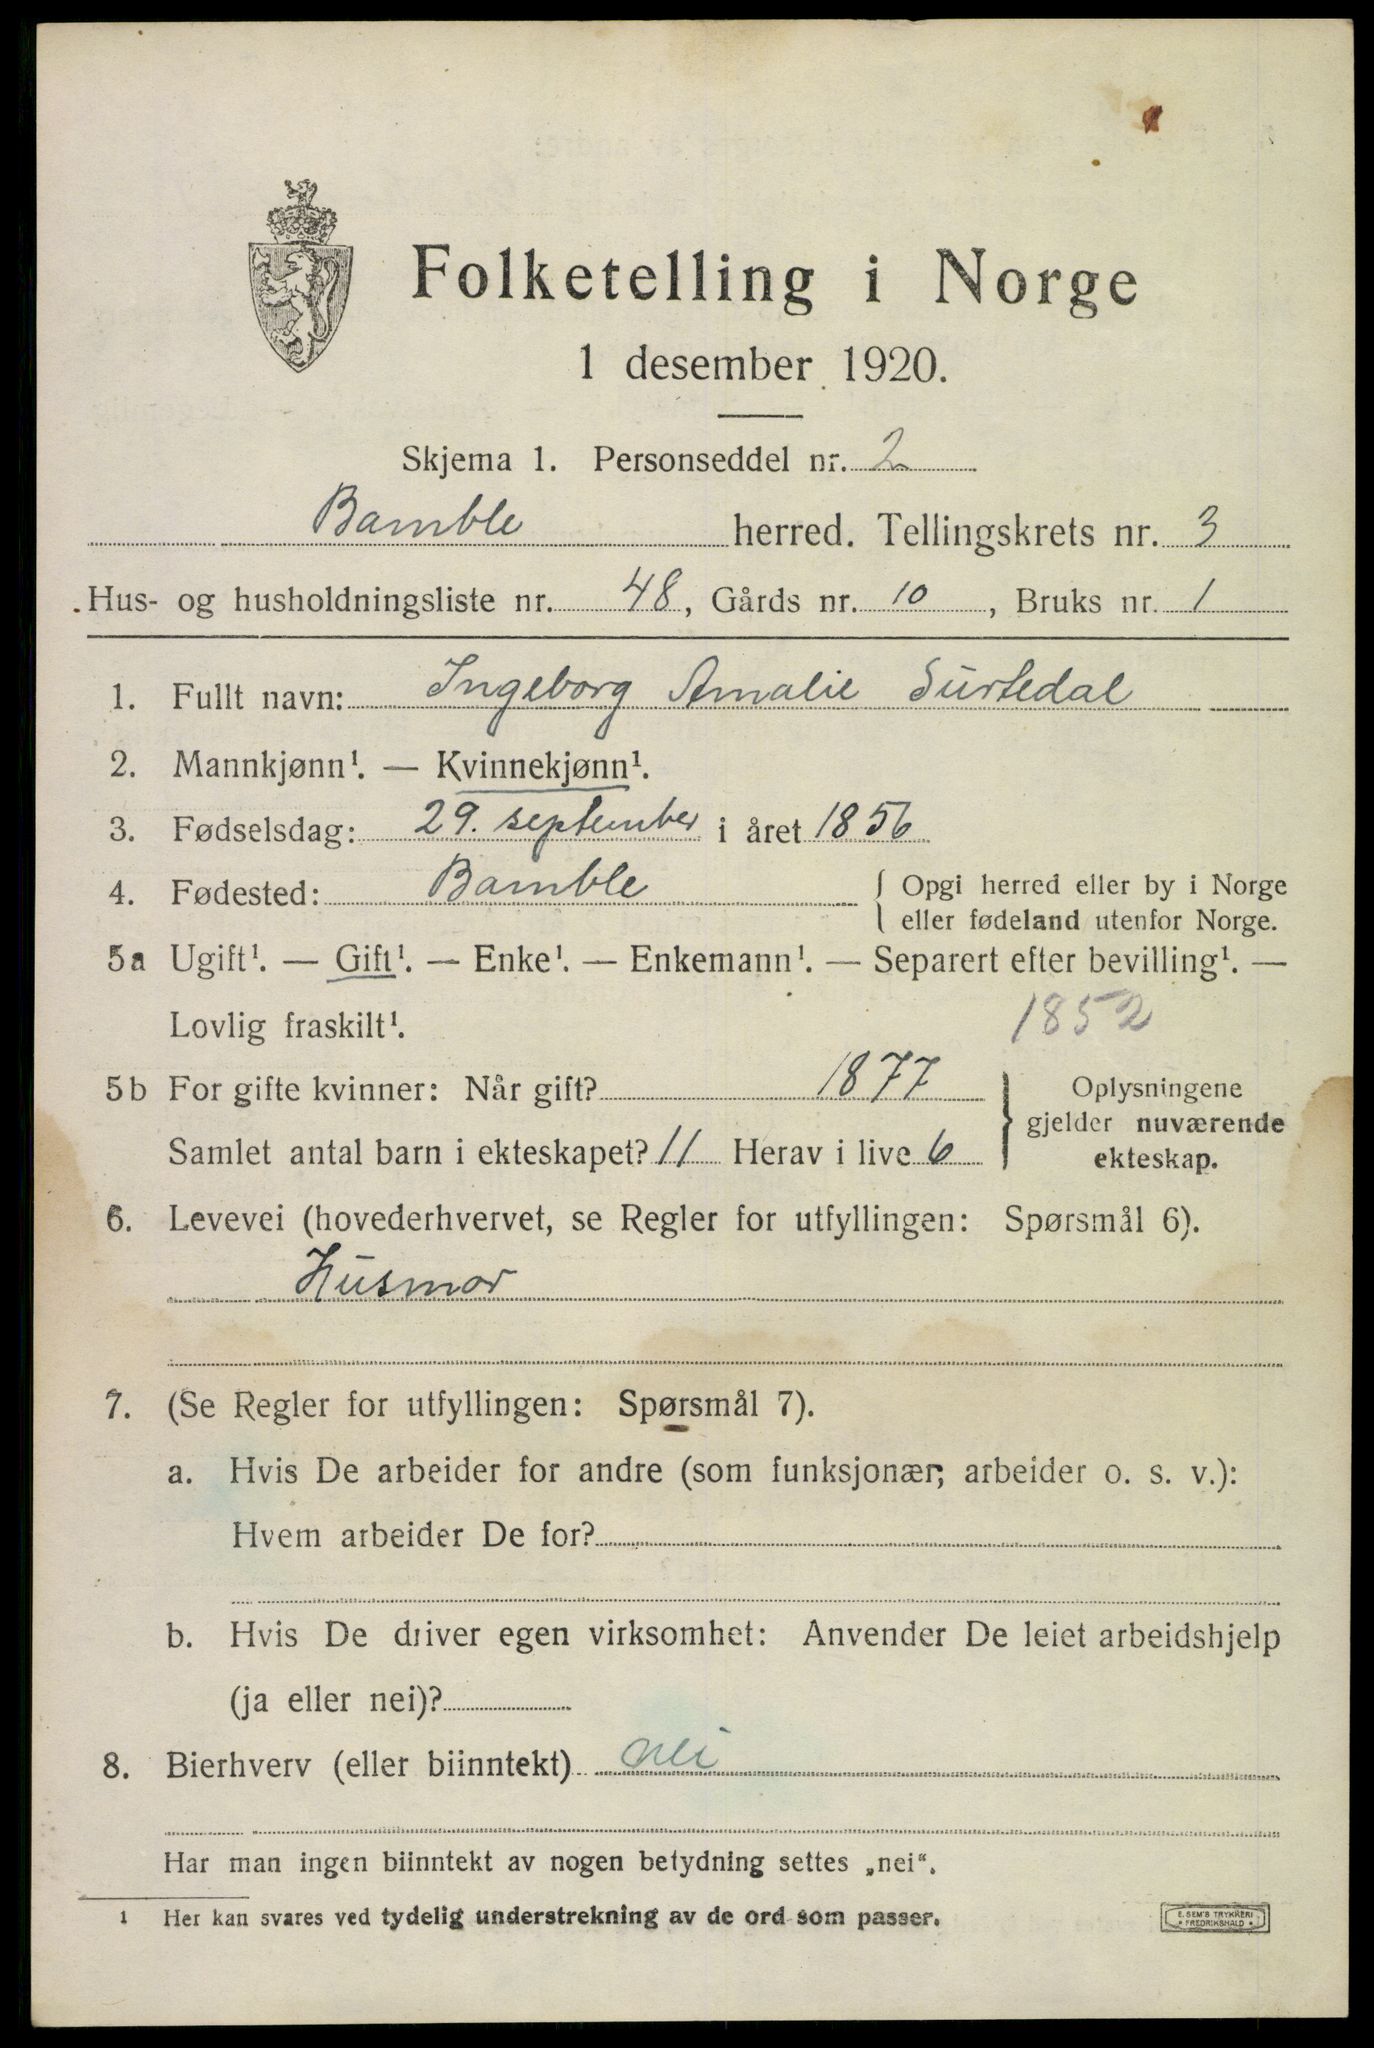 Folketelling i Norge
1 desember 1920.
Skjema 1. Personseddel nr. 2
Bamble herred. Tellingskrets nr. 3
Hus- og husholdningsliste nr. 48, Gårds nr. 10, Bruks nr. 1
1. Fullt navn: Ingeborg Amalie Surtedal
2. Mannkjønn¹. — Kvinnekjønn¹.
3. Fødselsdag: 29. september i året 1856
4. Fødested: Bamble { Opgi herred eller by i Norge
eller fødeland utenfor Norge.
5a Ugift¹. — Gift¹. — Enke¹. — Enkemann¹. — Separert efter bevilling¹. —
Lovlig fraskilt¹. 1852
5b For gifte kvinner: Når gift? 1877 } Oplysningene
gjelder nuværende
Samlet antal barn i ekteskapet? 11 Herav i live 6 ekteskap.
6. Levevei (hovederhvervet, se Regler for utfyllingen: Spørsmål 6).
Husmor
7. (Se Regler for utfyllingen: Spørsmål 7).
a. Hvis De arbeider for andre (som funksjonær, arbeider o. s. v.):
Hvem arbeider De for?
b. Hvis De driver egen virksomhet: Anvender De leiet arbeidshjelp
(ja eller nei)?
8. Bierhverv (eller biinntekt) nei
Har man ingen biinntekt av nogen betydning settes „nei“.
1 Her kan svares ved tydelig understrekning av de ord som passer.
E. SEM'S TRYKKERI
* FREDRIKSHALD *